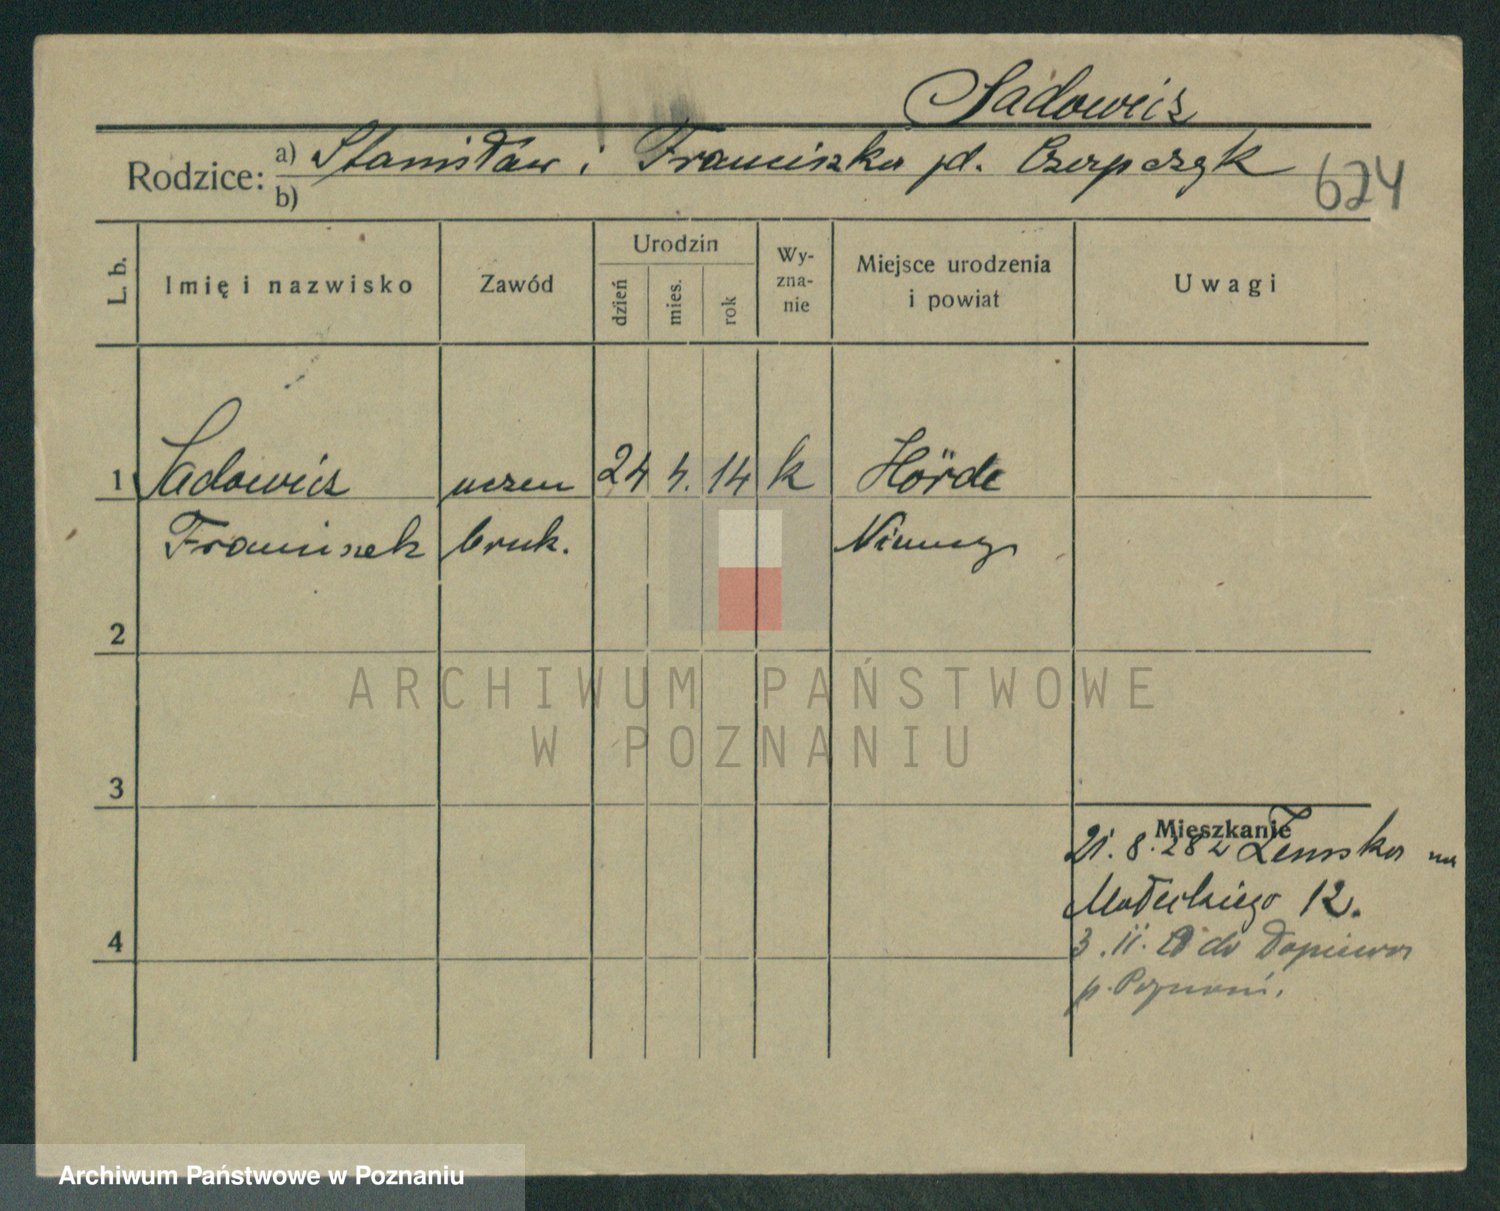 Sadowicz
Rodzice: a) Stanisław i Franciszka zd. Czerpczyk
b)
624
L. b. Imię i nazwisko Zawód Urodzin dzień mies. rok Wy-zna-nie Miejsce urodzenia i powiat Uwagi
1 Sadowicz uczen 24 4. 14 k Hörde
Franciszek bruk. Niemcy
2
ARCHIWUM PAŃSTWOWE
W POZNANIU
3
Mieszkanie
21. 8. 28 z Zemska na
Małeckiego 12.
4
3. 11. do Dopiewa
p. Poznani.
Archiwum Państwowe w Poznaniu